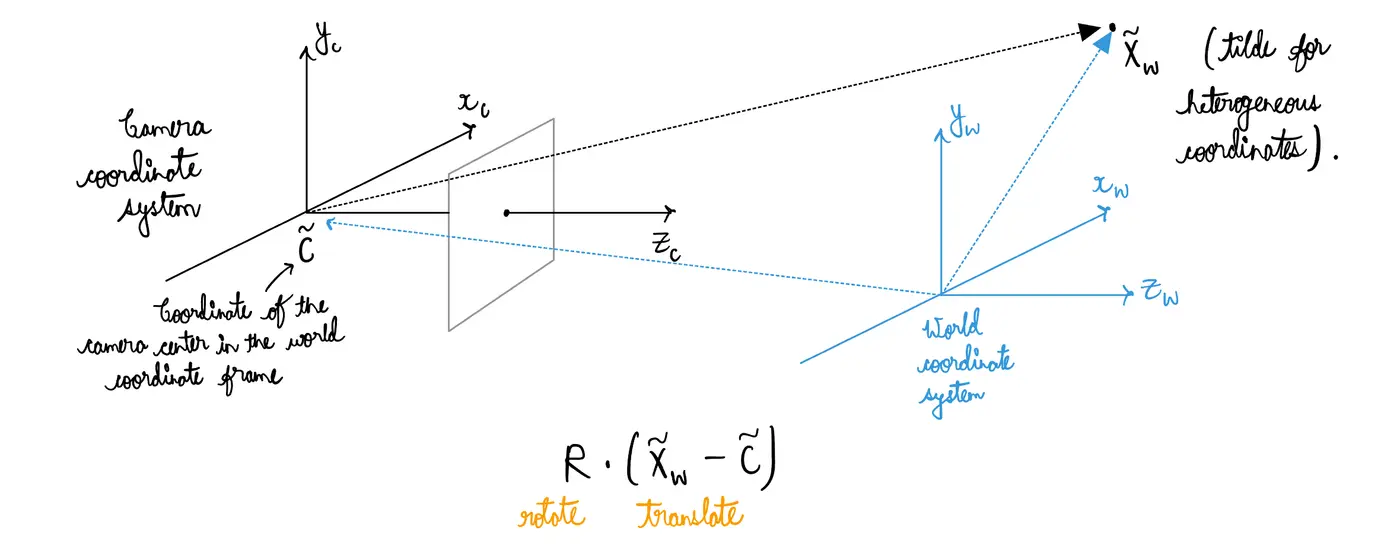 y_c
x_c
Camera
coordinate
system
z_c
C̃
Coordinate of the
camera center in the world
coordinate frame
X̃_w
(tilde for
heterogeneous
coordinates).
y_w
x_w
z_w
World
coordinate
system
R · (X̃_w − C̃)
rotate translate